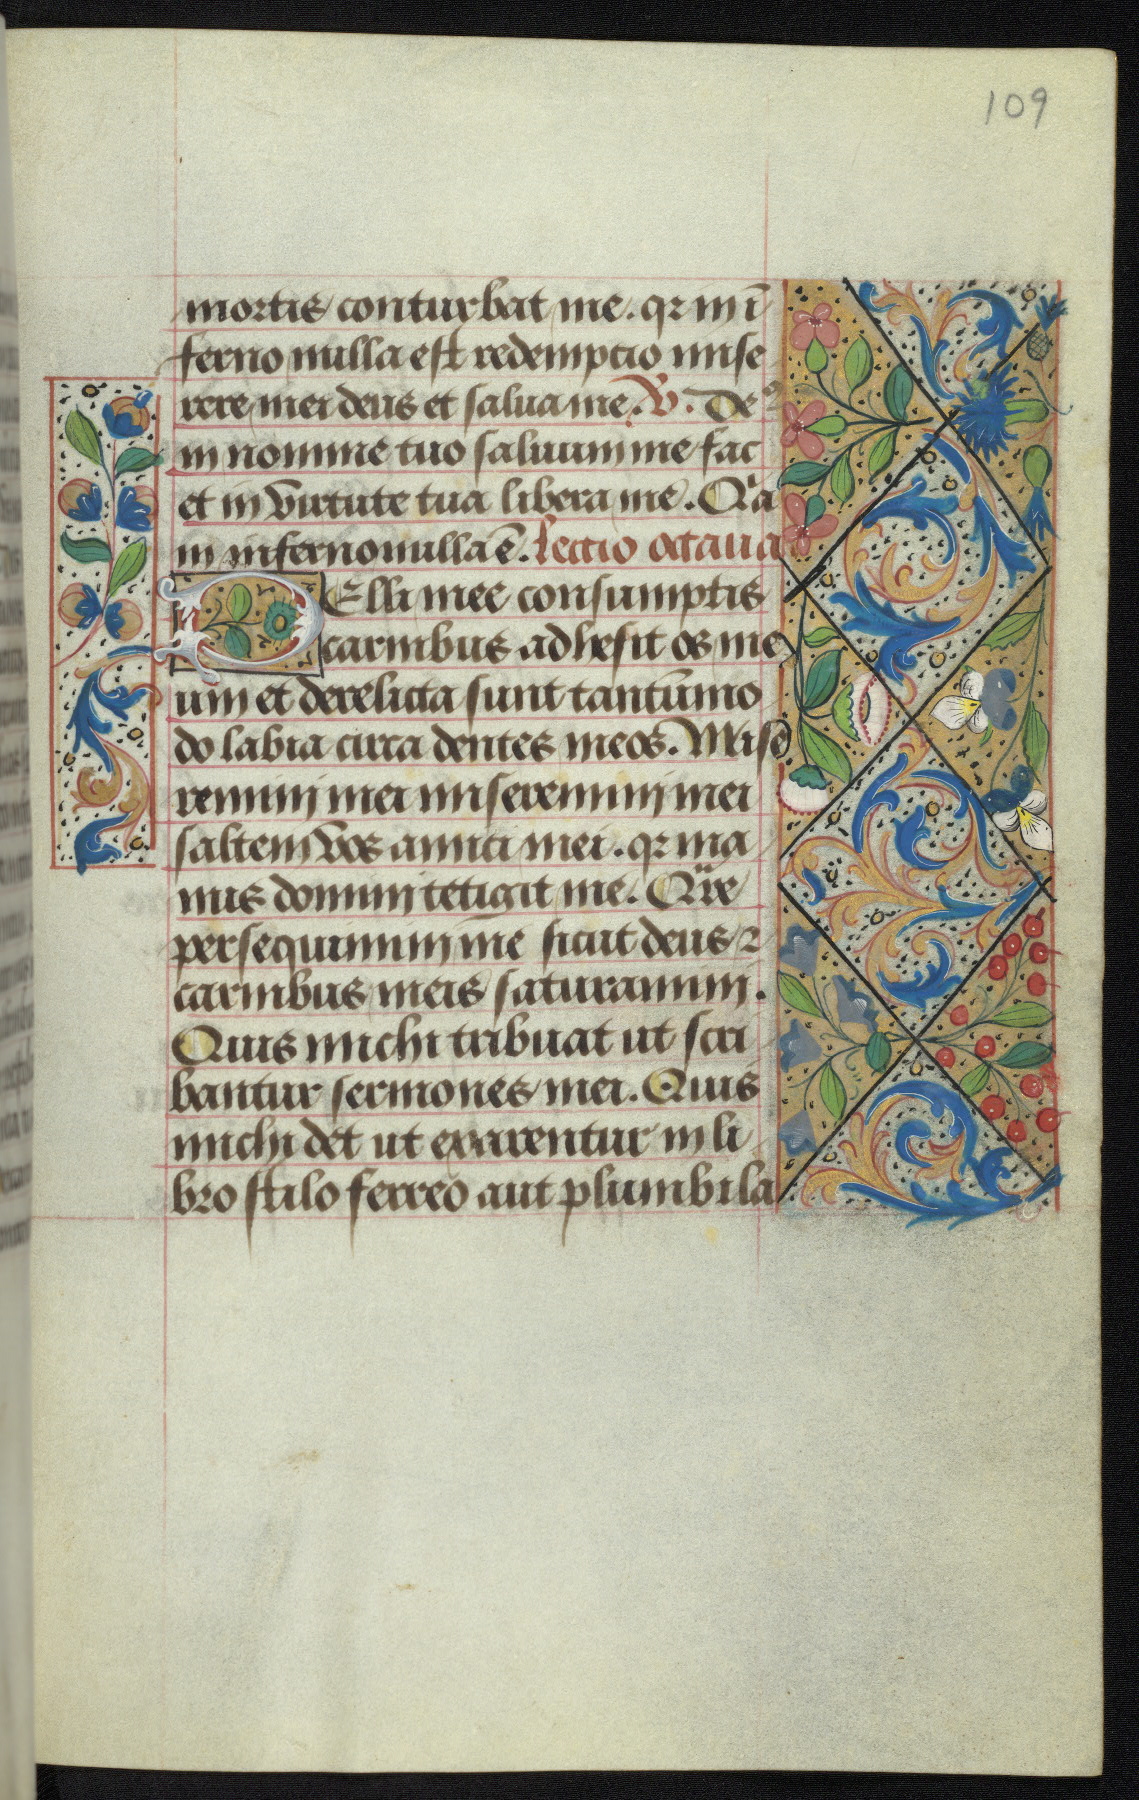 109
mortis conturbat me. qr in ī
ferno nulla est redempcio mise
rere mei deus et salua me. V. De⁹
in nomine tuo saluum me fac
et in virtute tua libera me. Qa
in inferno nulla ē. Lectio octaua
Pelli mee consumptis
carnibus adhesit os me
um et derelicta sunt tantumo
do labia circa dentes meos. Mise
remini mei miseremini mei
saltem vos amici mei. qr ma
nus domini tetigit me. Qre
persequimini me sicut deus ⁊
carnibus meis saturamini.
Quis michi tribuat ut scri
bantur sermones mei. Quis
michi det ut exarentur in li
bro stilo ferreo aut plumbi la